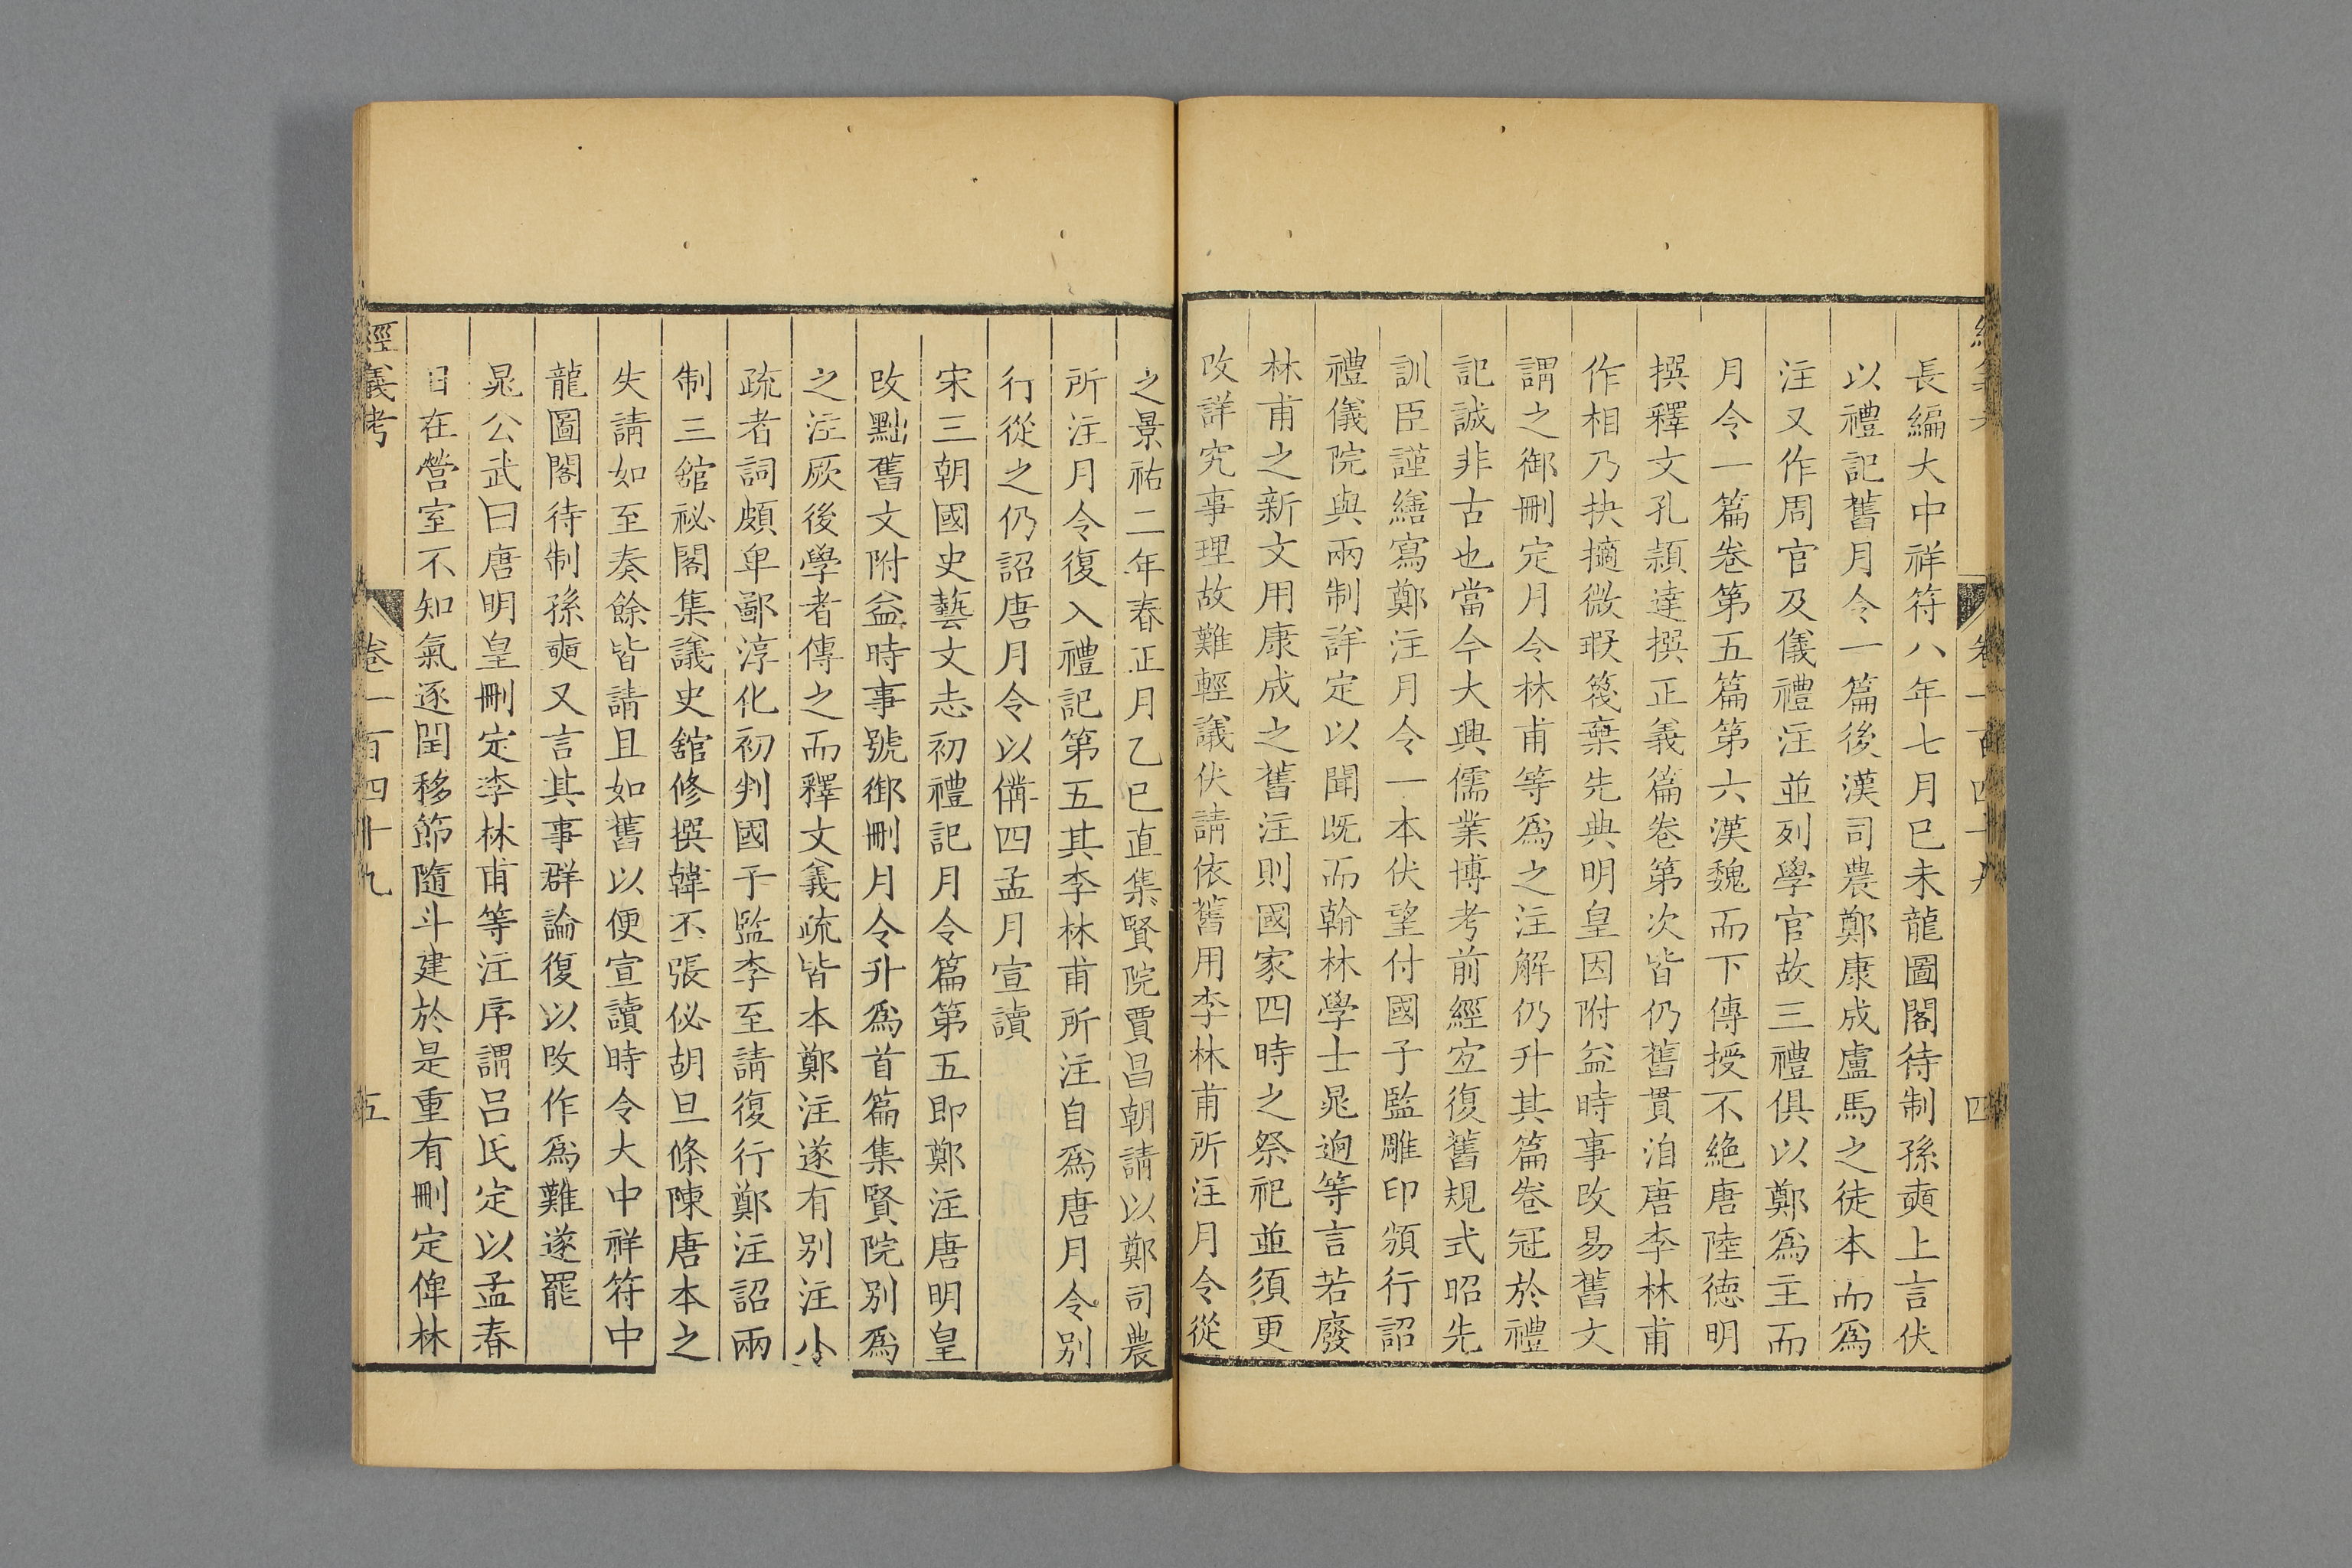 長編大中祥符八年七月巳未龍圖閣待制孫奭上言伏
以禮記舊月令一篇後漢司農鄭康成盧馬之徒本而爲
注又作周官及儀禮注並列學官故三禮俱以鄭爲主而
月令一篇卷第五篇第六漢魏而下傳授不絶唐陸德明
撰釋文孔頴達撰正義篇卷第次皆仍舊貫洎唐李林甫
作相乃抉擿微瑕筏棄先典明皇因附益時事改易舊文
謂之御刪定月令林甫等爲之注解仍升其篇卷冠於禮
記誠非古也當今大興儒業博考前經宐復舊規式昭先
訓臣謹繕寫鄭注月令一本伏望付國子監雕印頒行詔
禮儀院與兩制詳定以聞既而翰林學士晁逈等言若廢
林甫之新文用康成之舊注則國家四時之祭祀並須更
改詳究事理故難輕議伏請依舊用李林甫所注月令從
之景祐二年春正月乙巳直集賢院賈昌朝請以鄭司農
所注月令復入禮記第五其李林甫所注自爲唐月令別
行從之仍詔唐月令以備四孟月宣讀
宋三朝國史藝文志初禮記月令篇第五即鄭注唐明皇
改黜舊文附益時事號御刪月令升爲首篇集賢院別爲
之注厥後學者傳之而釋文義疏皆本鄭注遂有別注小
疏者詞頗卑鄙淳化初判國子監李至請復行鄭注詔兩
制三舘祕閣集議史舘修撰韓丕張佖胡旦條陳唐本之
失請如至奏餘皆請且如舊以便宣讀時令大中祥符中
龍圖閣待制孫奭又言其事群論復以改作爲難遂罷
晁公武曰唐明皇刪定李林甫等注序謂呂氏定以孟春
日在營室不知氣逐閏移節隨斗建於是重有刪定俾林
經義考 卷一百四十九 五